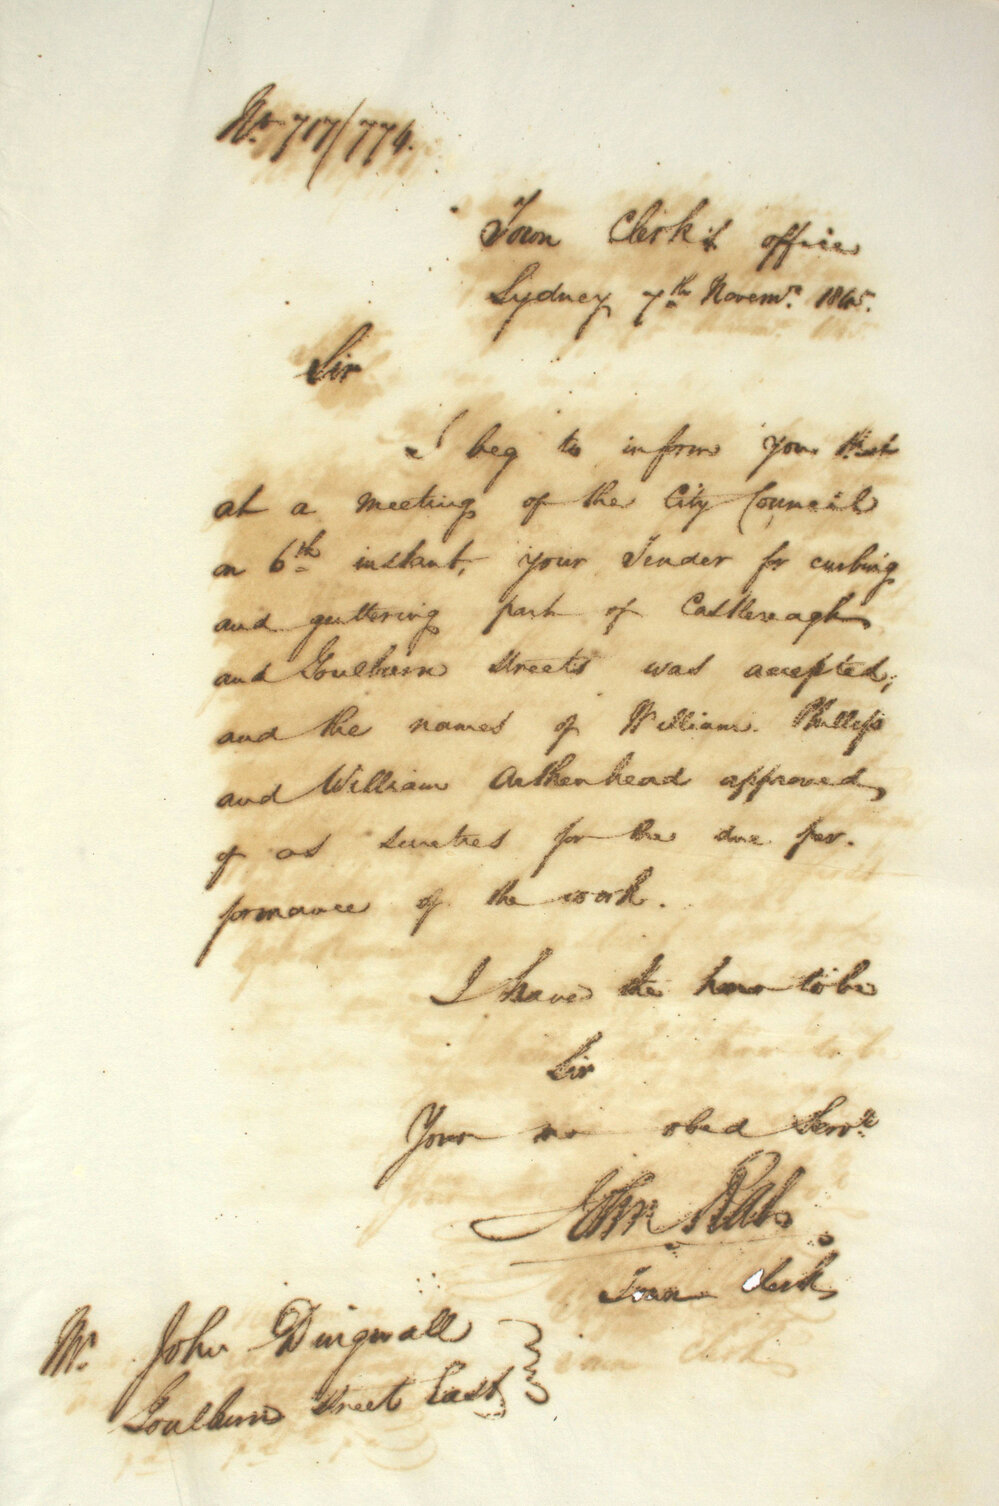 No. 717/774.
Town Clerk's office
Sydney 7th Novemr. 1845.
Sir
I beg to inform you that
at a meeting of the City Council
on 6th instant, your Tender for curbing
and guttering part of Castlereagh
and Goulburn streets was accepted,
and the names of William Phillips
and William Aitkenhead approved
of as sureties for the due per-
formance of the work.
I have the honor to be
Sir
Your mo obed Servt.
John Rae
Town Clerk
Mr. John Dingwall
Goulburn Street East